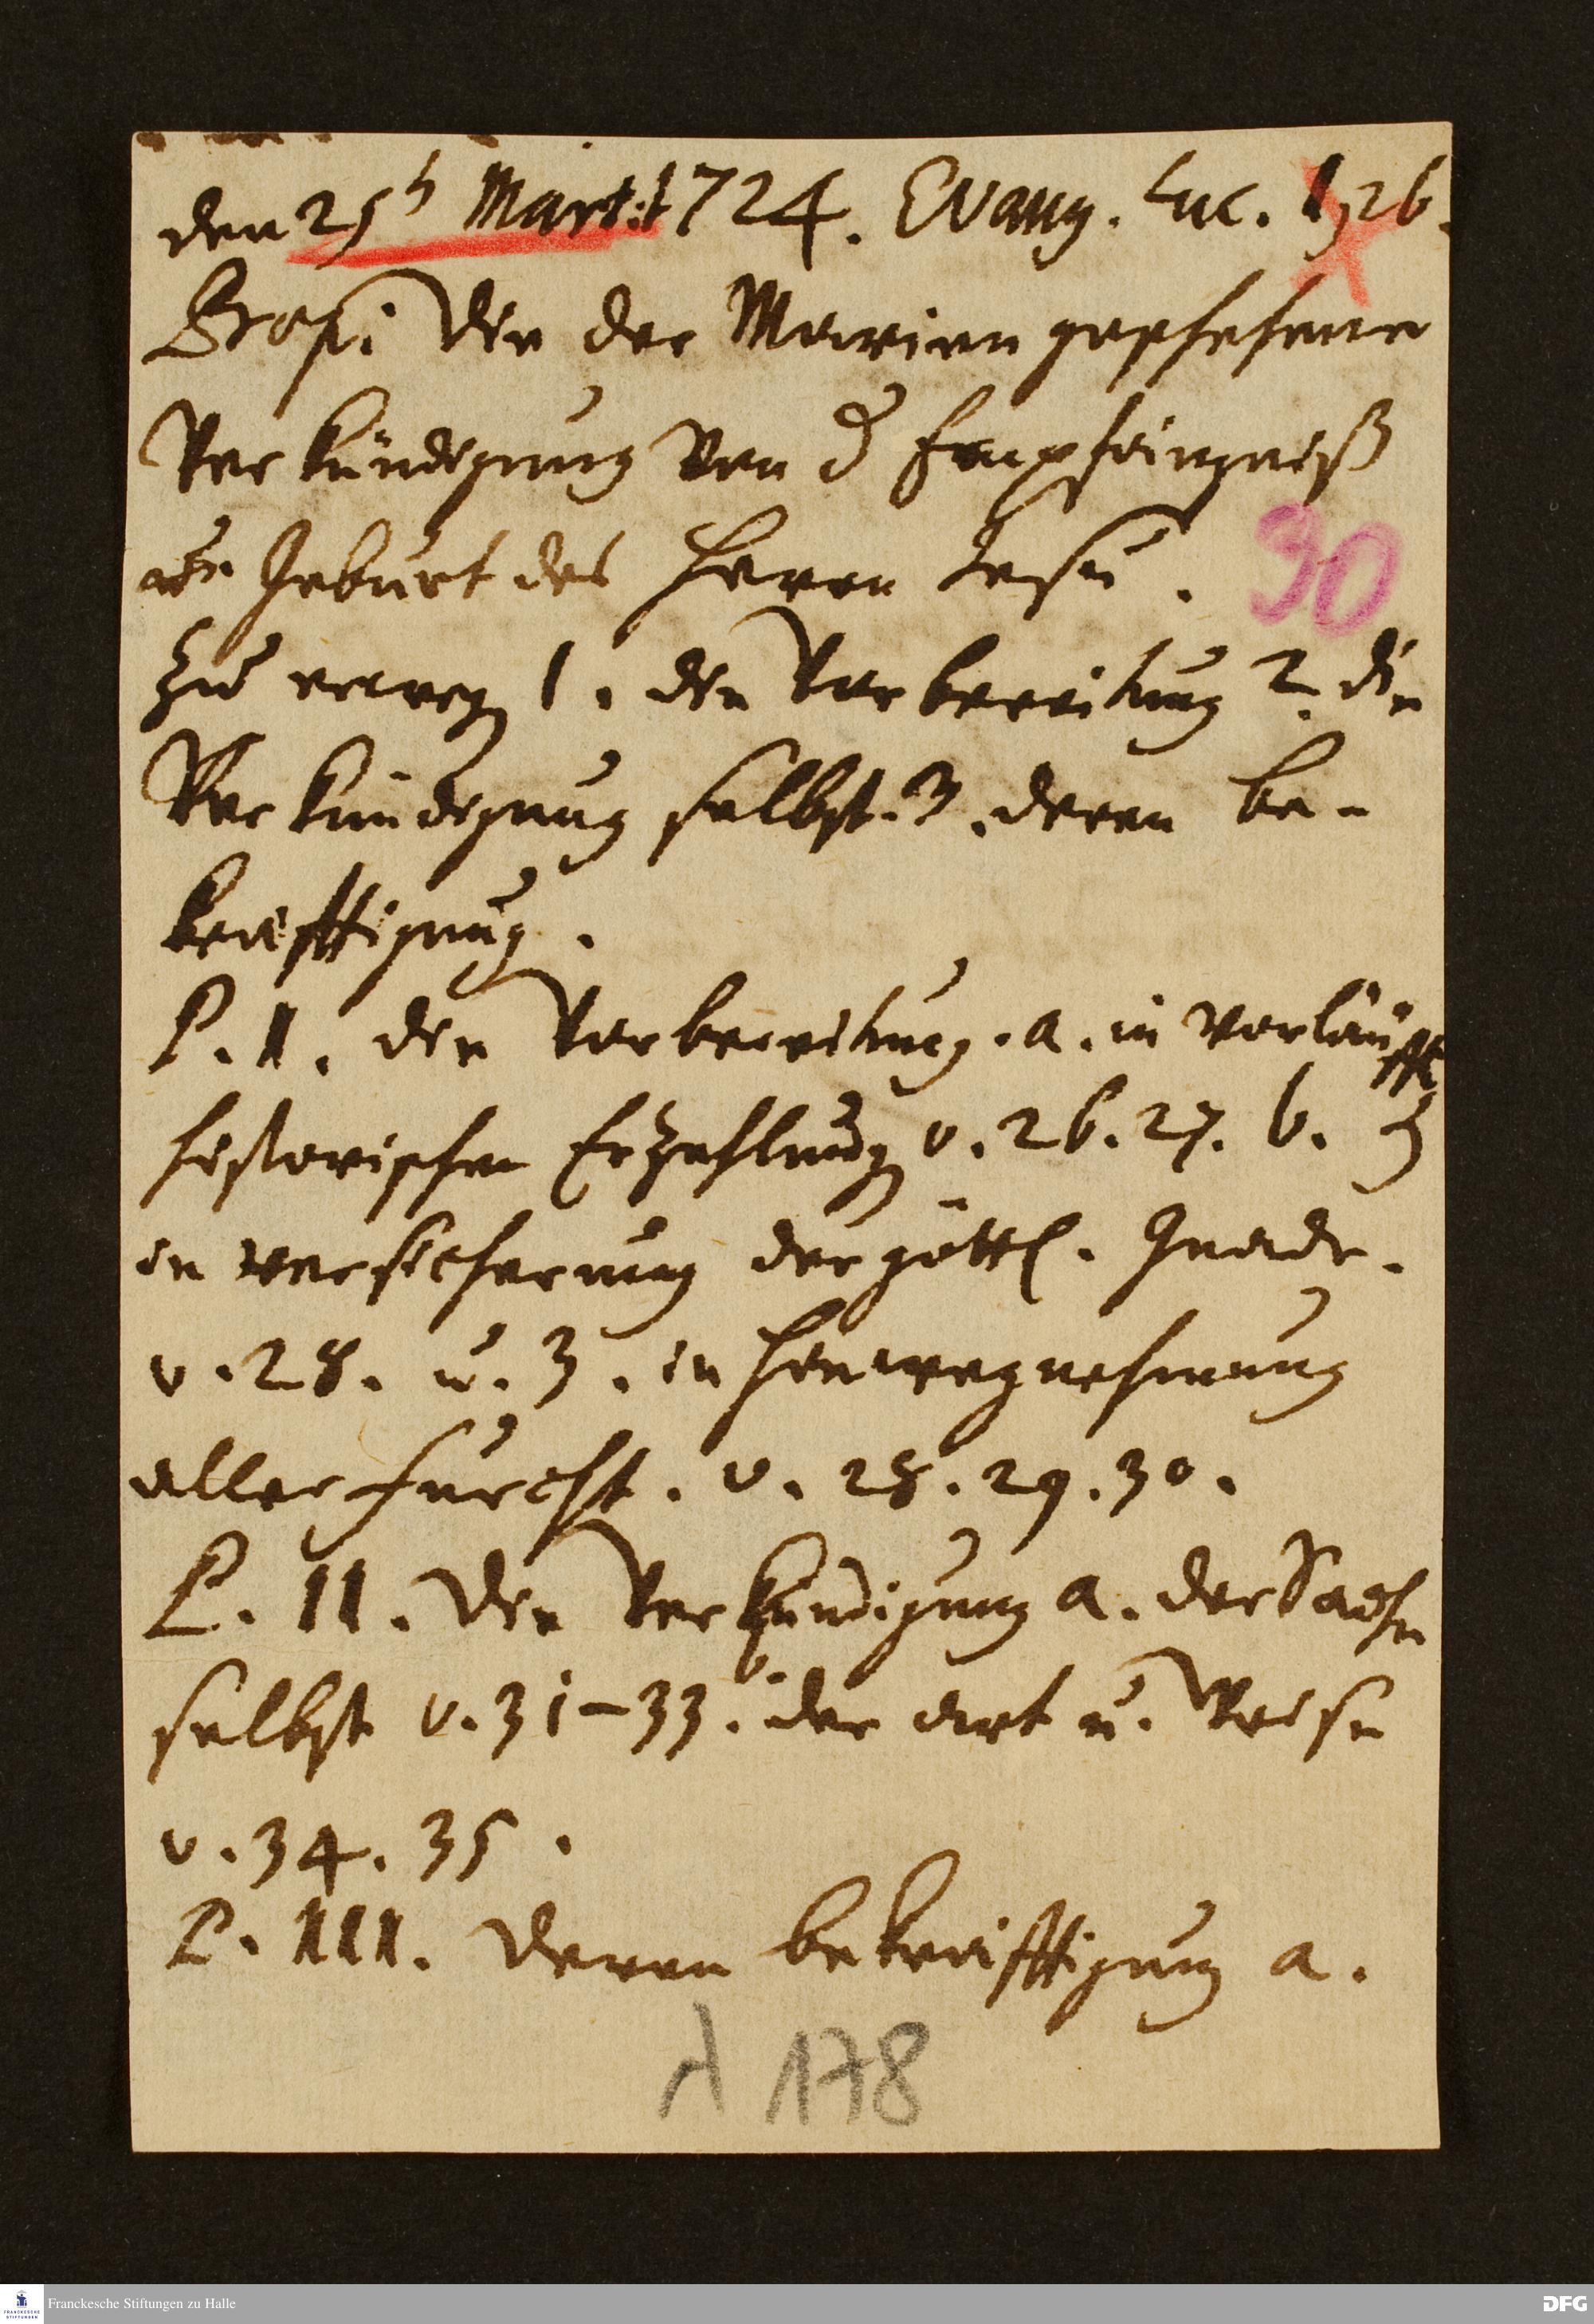 den 25t Mart: 1724. Evang. Luc. 1, 26.
Prop: Die der Marien geschehene
Verkündigung von d Empfängniß
und Geburt des Herrn Jesu.
30
Zu erweg 1. die Vorbereitung 2. die
Verkündigung selbst. 3. deren be-
kräfftigung.
P. I. die Vorbereitung. a. in vorläuff
historischen Erzehlung v. 26. 27. b.
in versicherung der göttl. Gnade.
v. 28. u. 3. in hinwegnehmung
aller furcht. v. 28. 29. 30.
P. II. Die Verkündigung a. der Sache
selbst v. 31-33. b. der art u. Weise
v. 34. 35.
P. III. Deren bekräfftigung a.
A 178
FRANCKESCHE STIFTUNGEN
Franckesche Stiftungen zu Halle
DFG